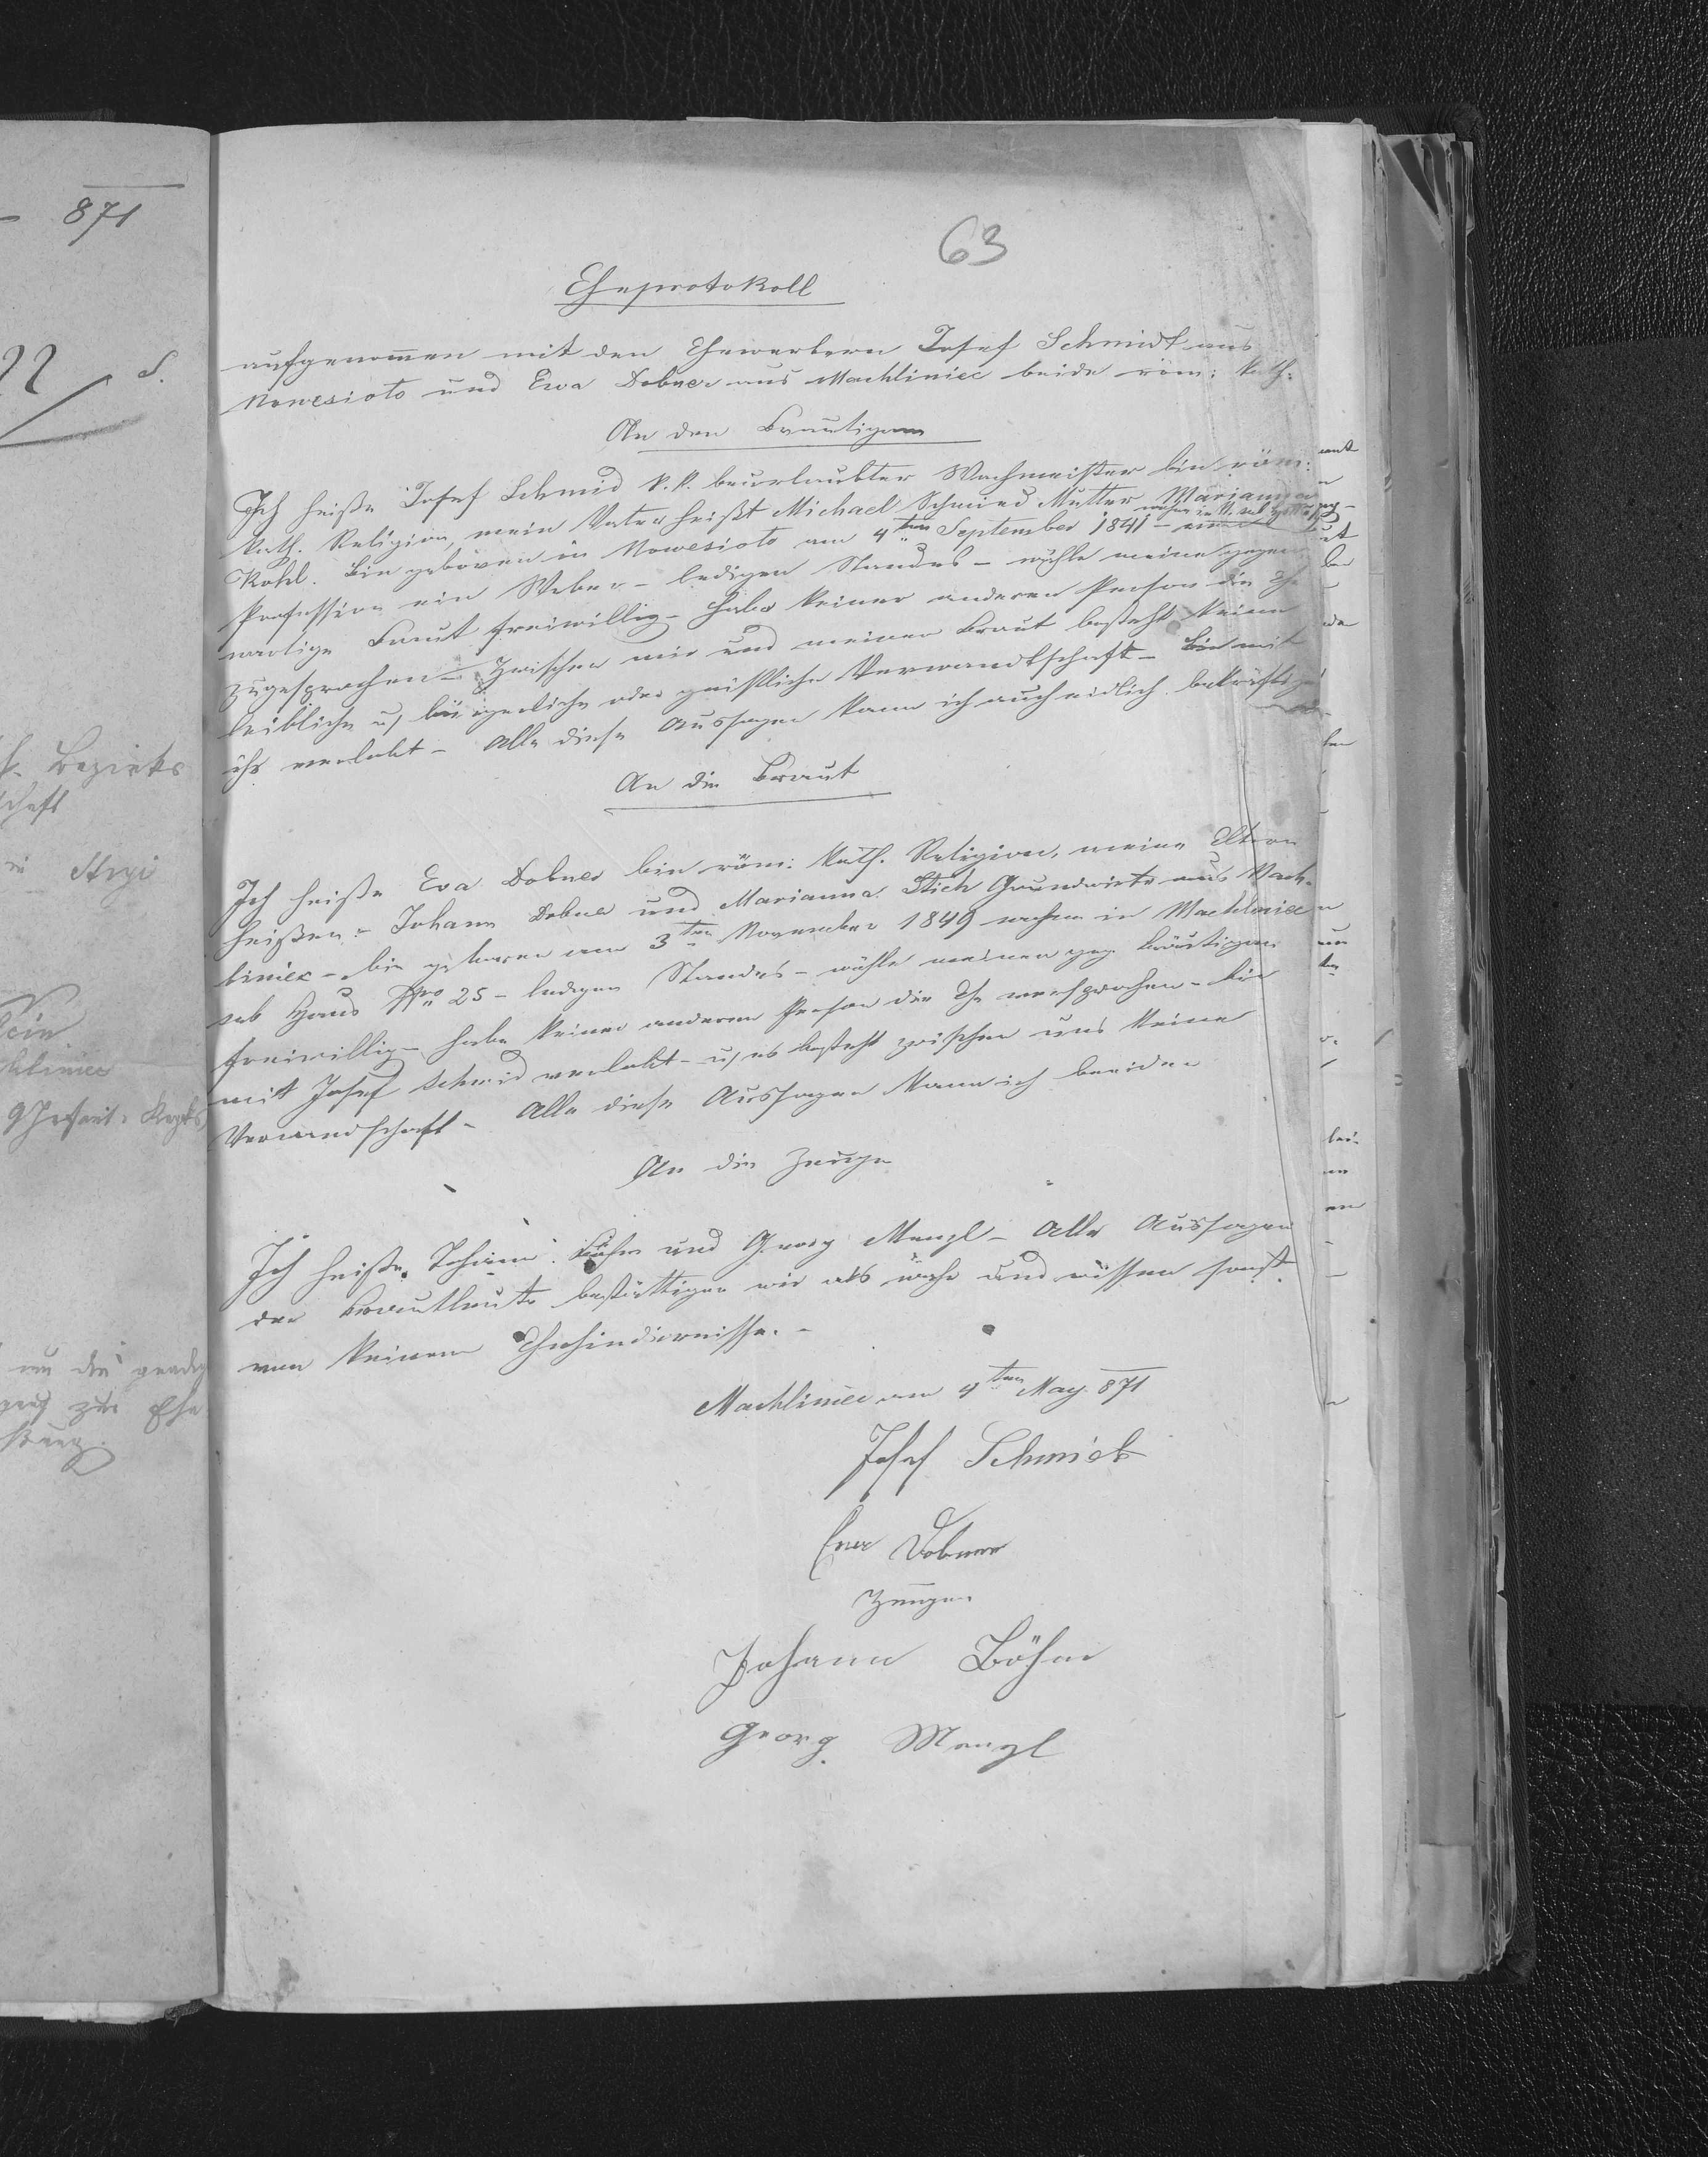 871
22 S.
k. Bezirks
schaft
in Stryi
63
Eheprotokoll
aufgenommen mit den Ehewerbern Josef Schmidt aus
Nowesioło und Ewa Dobner aus Machliniec beide röm: kath:
An den Bräutigam
Ich heiße Josef Schmid k.k. beurlaubter Wachmeister bin röm:
kath. Religion, mein Vater heißt Michael Schmied Mutter Marianna
Kohl. Bin geboren in Nowesioło am 4ten September 1841 –
Profession ein Weber – ledigen Standes – wähle meine gegen
wärtige Braut freiwillig – habe keiner anderen Person die Ehe
zugesprochen – Zwischen mir und meiner Braut besteht keine
leibliche u, bürgerliche oder geistliche Verwandtschaft – bin mit
ihr verlobt – Alle diese Aussagen kann ich auch eidlich bekräftigen
An die Braut
Ich heiße Eva Dobner bin röm: kath. Religion, meine Eltern
heißen: Johann Dobner und Marianna Stich Grundwirte aus Mach-
liniec – bin geboren am 3ten November 1849 wohne in Machliniec
sub Haus Nro 25 – ledigen Standes – wähle meinen geg. Bräutigam
freiwillig – habe keiner anderen Person die Ehe versprochen – bin
mit Josef Schmid verlobt – u, es besteht zwischen uns keine
Verwandschaft – Alle diese Aussagen kann ich beeiden
An die Zeugen
Ich heiße Johann Böhm und Georg Menzl – Alle Aussagen
der Brautleute bestättigen wir als wahr und wissen sonst
von keinem Ehehindernisse. –
Machliniec am 4ten May 871
Josef Schmidt
Ewa Dobner
Zeugen
Johann Böhm
Georg Menzl